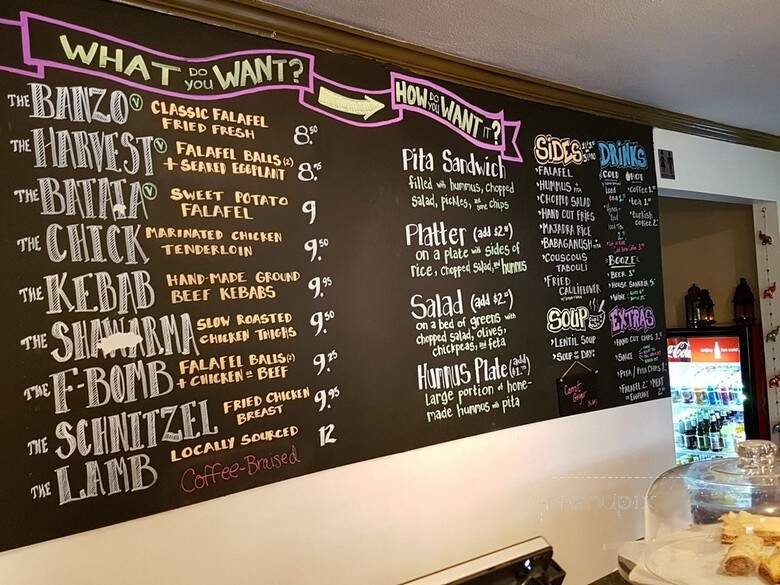 WHAT DO YOU WANT?
THE BANZO V CLASSIC FALAFEL
FRIED FRESH 8.50
THE HARVEST V FALAFEL BALLS (2)
+ SEARED EGGPLANT 8.75
THE BATATA V SWEET POTATO
FALAFEL 9
THE CHICK MARINATED CHICKEN
TENDERLOIN 9.50
THE KEBAB HAND-MADE GROUND
BEEF KEBABS 9.95
THE SHAWARMA SLOW ROASTED
CHICKEN THIGHS 9.50
THE F-BOMB FALAFEL BALLS (2)
+ CHICKEN OR BEEF 9.75
THE SCHNITZEL FRIED CHICKEN
BREAST 9.95
THE LAMB LOCALLY SOURCED 12
Coffee-Braised
HOW DO YOU WANT IT?
Pita Sandwich
filled with hummus, chopped
salad, pickles, and some chips
Platter (add $2.00)
on a plate with sides of
rice, chopped salad, and hummus
Salad (add $2.00)
on a bed of greens with
chopped salad, olives,
chickpeas, and feta
Hummus Plate (add $1.00)
Large portion of home-
made hummus with pita
SIDES
FALAFEL
HUMMUS
CHOPPED SALAD
HAND CUT FRIES
MAJADRA RICE
BABAGANUSH
COUSCOUS
TABOULI
FRIED
CAULIFLOWER
SOUP
LENTIL SOUP
SOUP OF THE DAY:
Carrot
Ginger
DRINKS
COLD HOT
Iced
tea
coffee 1
tea 1
turkish
coffee 2
BOOZE
BEER
HOUSE SANGRIA 5
WINE
EXTRAS
HAND CUT CHIPS
SAUCE
PITA / PITA CHIPS
FALAFEL 2 MEAT
OR EGGPLANT
Coca-Cola